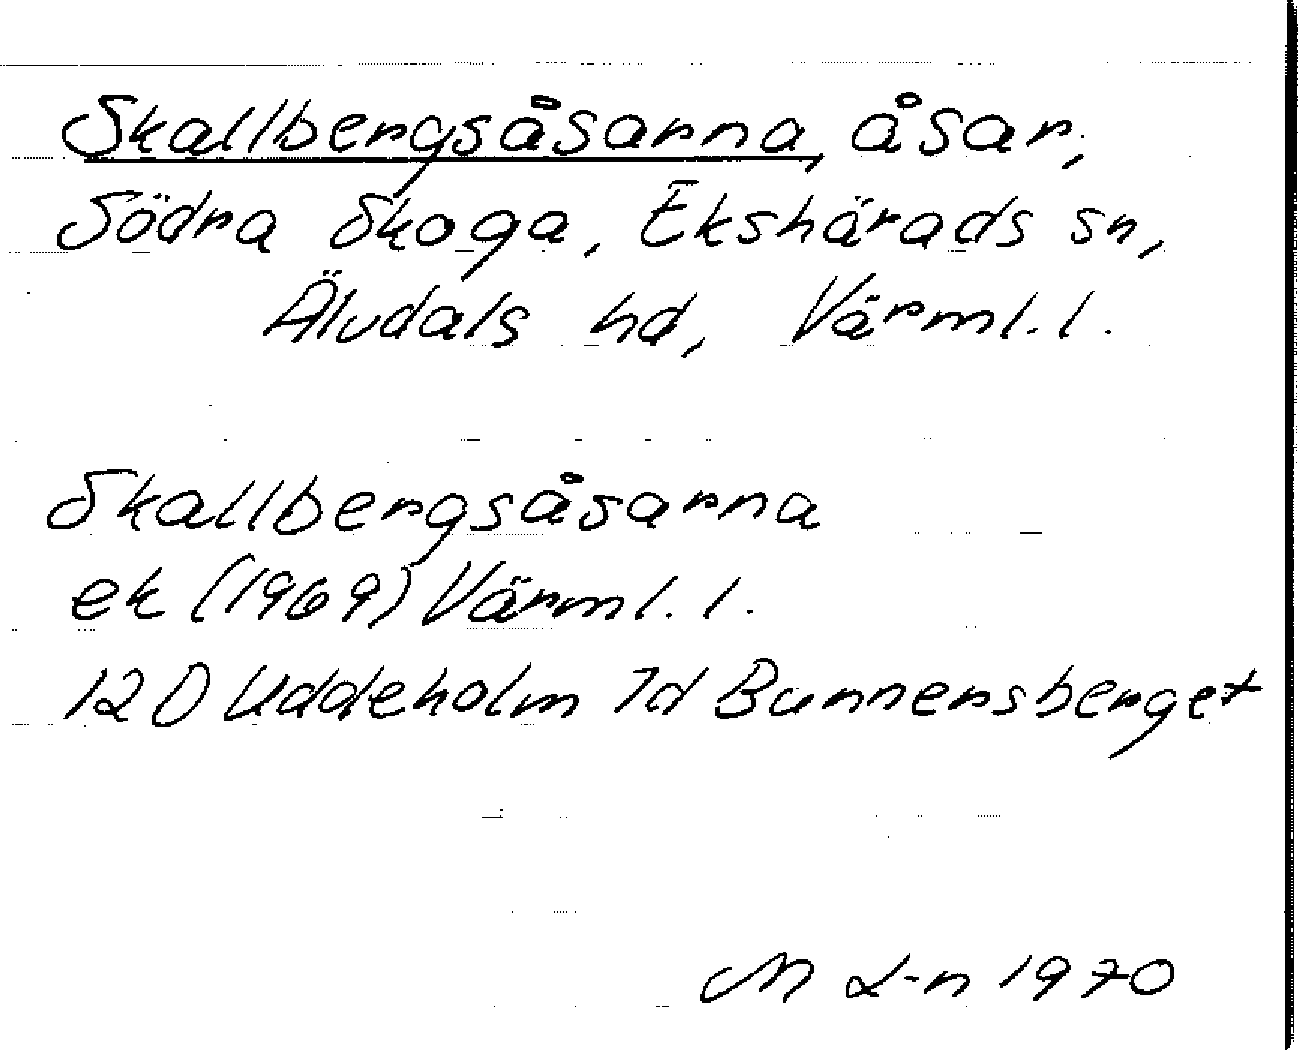 Skallbergsåsarna, åsar,
Södra Skoga, Ekshärads sn,
Älvdals hd, Värml. l.
Skallbergsåsarna
ek (1969) Värml. l.
12 D Uddeholm 7d Bunnersberget
M L-n 1970